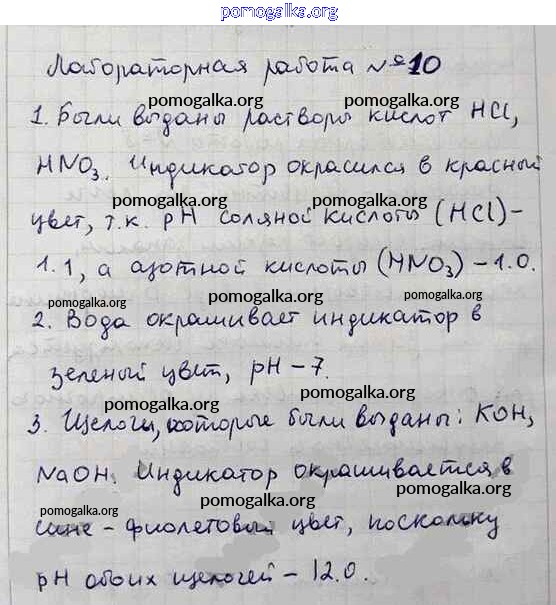 pomogalka.org
Лабораторная работа №10
pomogalka.org
1. Были выданы растворы кислот HCl,
pomogalka.org
HNO3. Индикатор окрасился в красный
pomogalka.org
цвет, т.к. pH соляной кислоты (HCl)-
pomogalka.org
1.1, а азотной кислоты (HNO3) - 1.0.
pomogalka.org
2. Вода окрашивает индикатор в
pomogalka.org
зеленый цвет, pH - 7.
pomogalka.org
3. Щелочи, которые были выданы: KOH,
pomogalka.org
NaOH. Индикатор окрашивается в
pomogalka.org
сине - фиолетовый цвет, поскольку
pomogalka.org
pH обоих щелочей - 12.0.